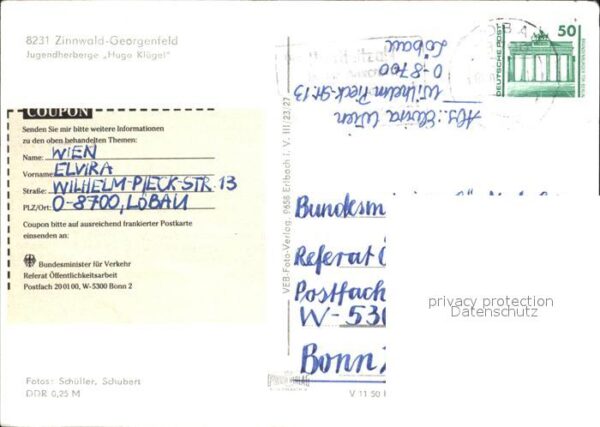 8231 Zinnwald-Georgenfeld
Jugendherberge „Hugo Klügel"
COUPON
Senden Sie mir bitte weitere Informationen
zu den oben behandelten Themen:
Name: WIEN
Vorname: ELVIRA
Straße: WILHELM-PIECK-STR. 13
PLZ/Ort: O-8700, LÖBAU
Coupon bitte auf ausreichend frankierter Postkarte
einsenden an:
Bundesminister für Verkehr
Referat Öffentlichkeitsarbeit
Postfach 20 01 00, W-5300 Bonn 2
Fotos: Schüller, Schubert
DDR 0,25 M
VEB-Foto-Verlag, 9658 Erlbach i. V. III/23/27
Abs.: Elvira Wien
Wilhelm-Pieck-Str. 13
O-8700
Löbau
LÖBAU
50
DEUTSCHE POST
Bundesm
Referat Ö
Postfach
W-530
Bonn 2
V 11 50
privacy protection
Datenschutz